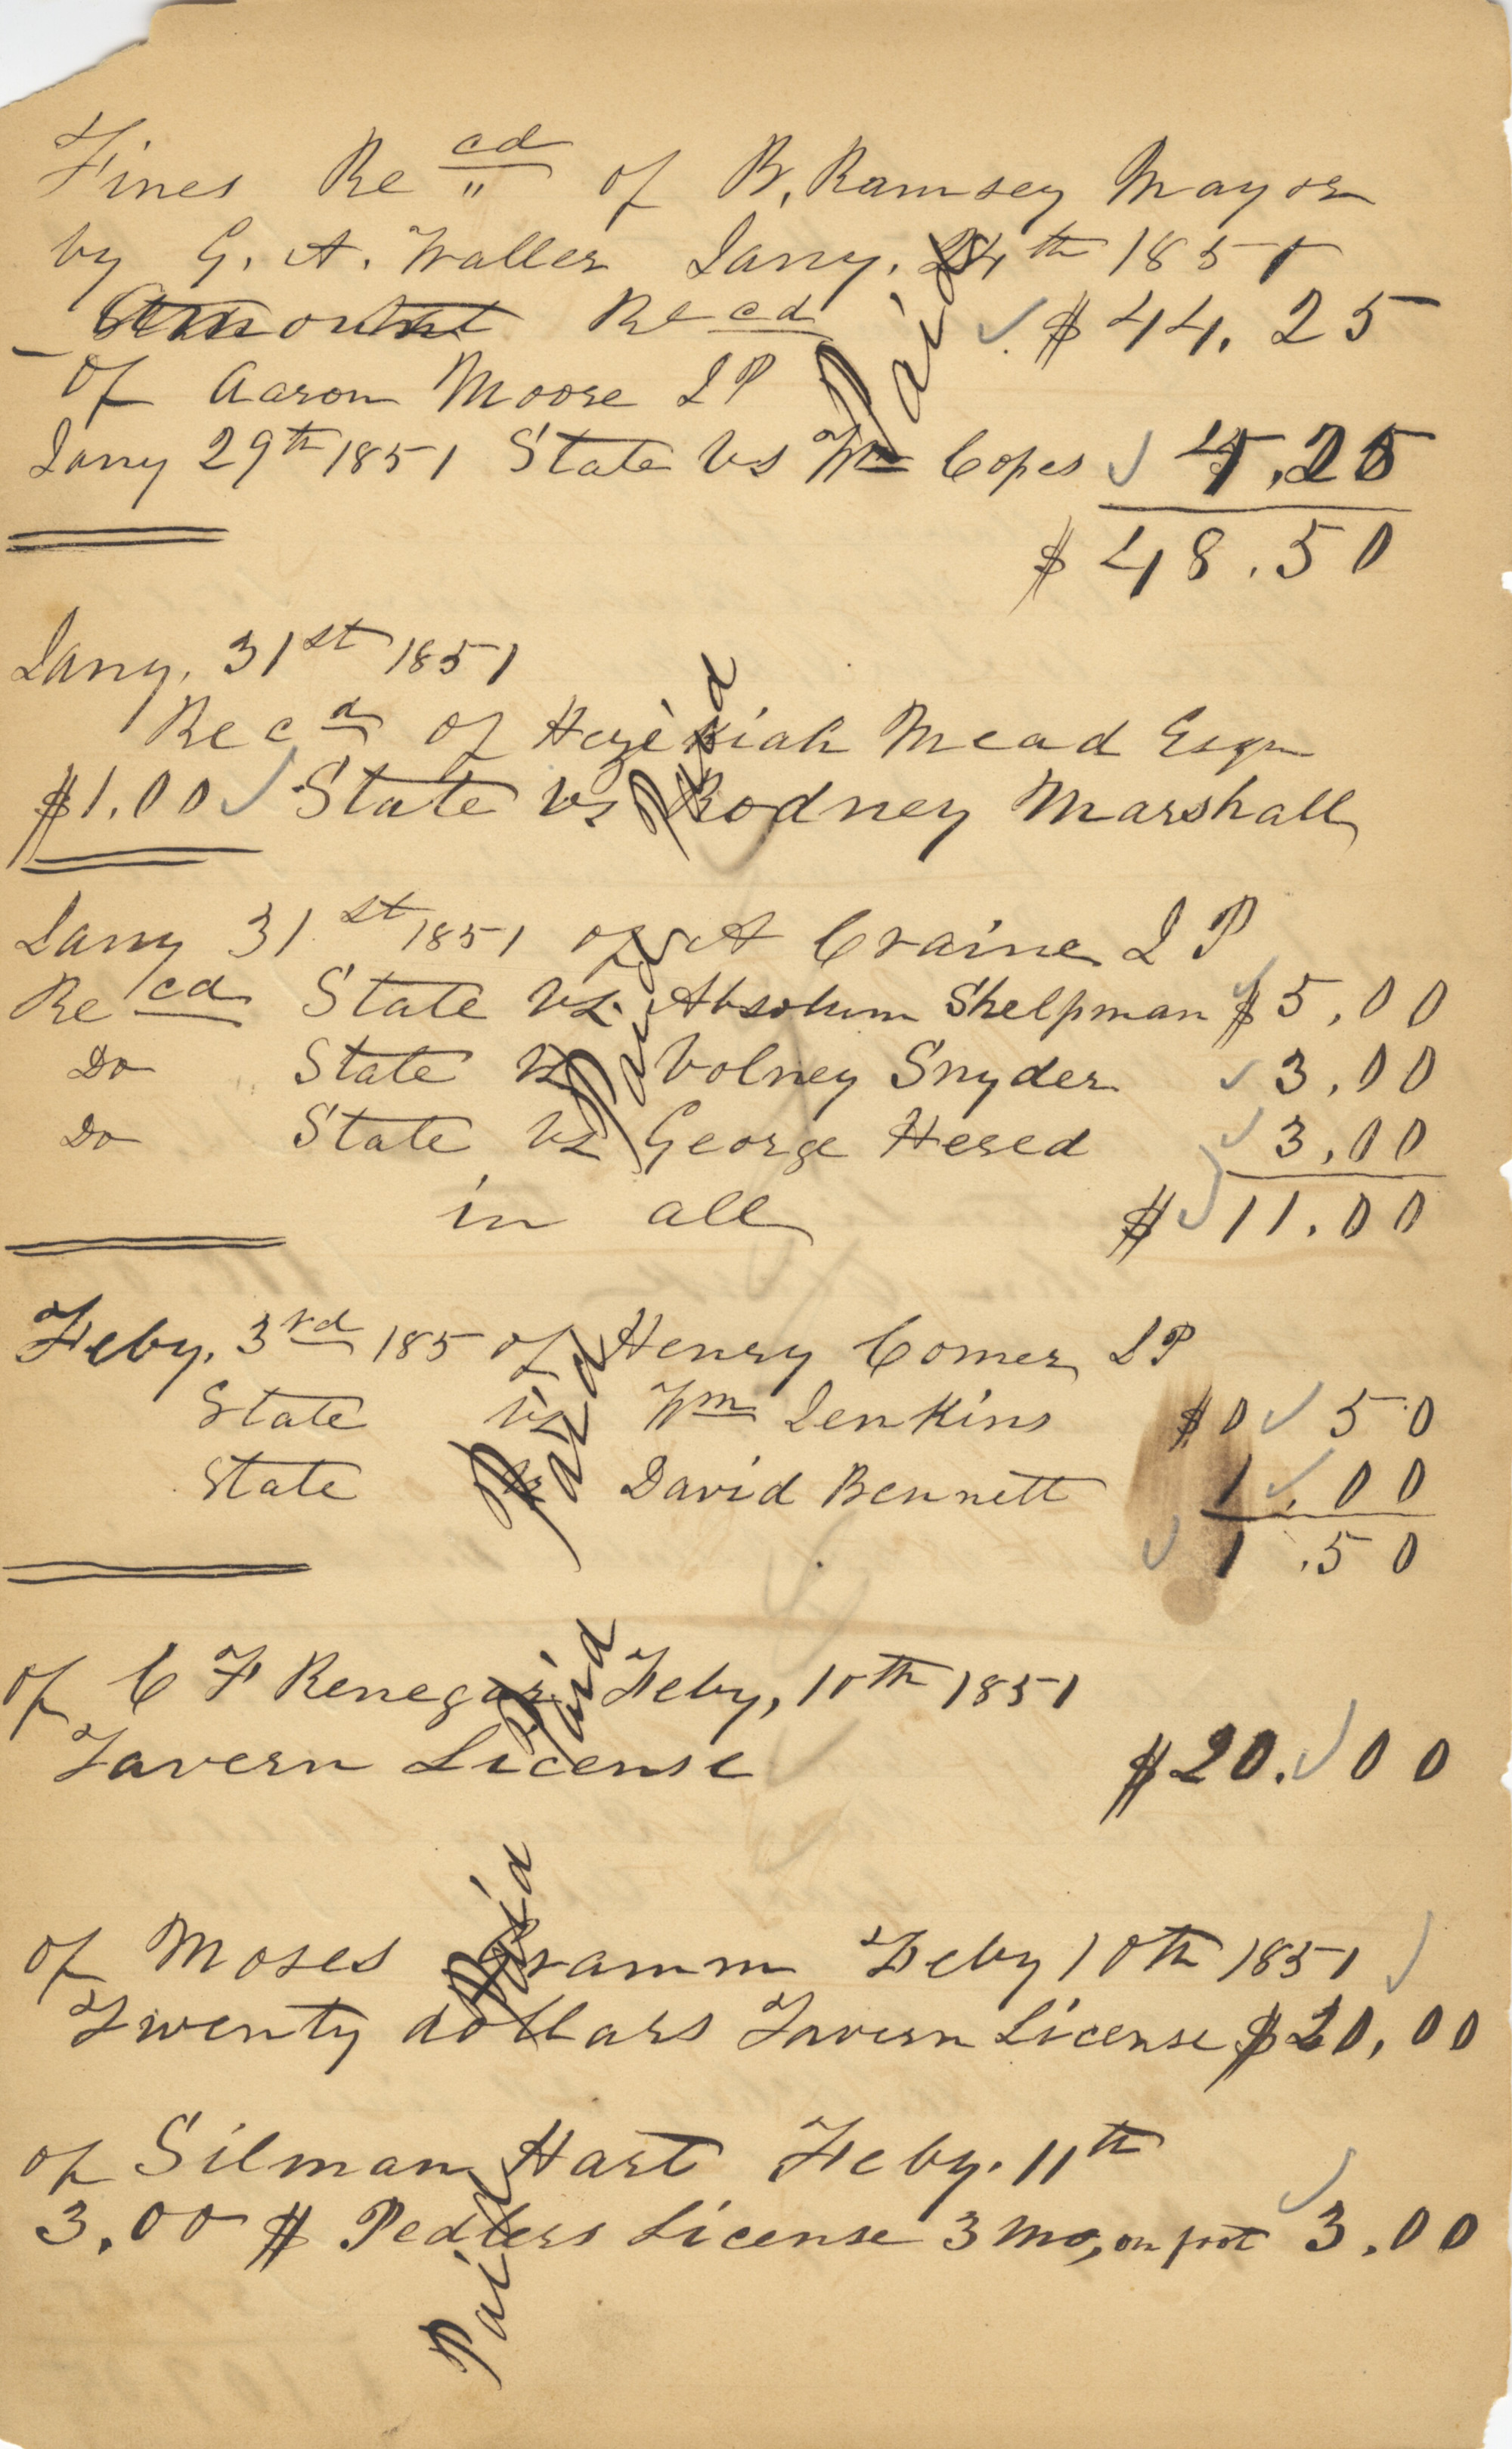 Fines Recd of B, Ramsey Mayor
by G. A. Waller Jany. 24th 1851
Recd $44.25
Of Aaron Moore J P
Jany 29th 1851 State vs Wm Copes 4.25
$48.50
Paid
Jany. 31st 1851
Recd of Hezekiah Mead Esqr
$1.00 State vs Rodney Marshall
Paid
Jany 31st 1851 of A Craine J P
Recd State vs. Absolum Shelpman $5,00
Do State vs Volney Snyder 3,00
Do State vs George Hered 3,00
in all $11.00
Paid
Feby. 3rd 185 of Henry Comer J P
State vs Wm Jenkins $0 50
State vs David Bennett 1.00
1.50
Paid
of C F Renegar Feby, 10th 1851
Tavern License $20.00
Paid
of Moses Feby 10th 1851
Twenty dollars Tavern License $20,00
Paid
of Silman Hart Feby. 11th
3.00 $ Pedlers License 3 mo, on foot 3.00
Paid